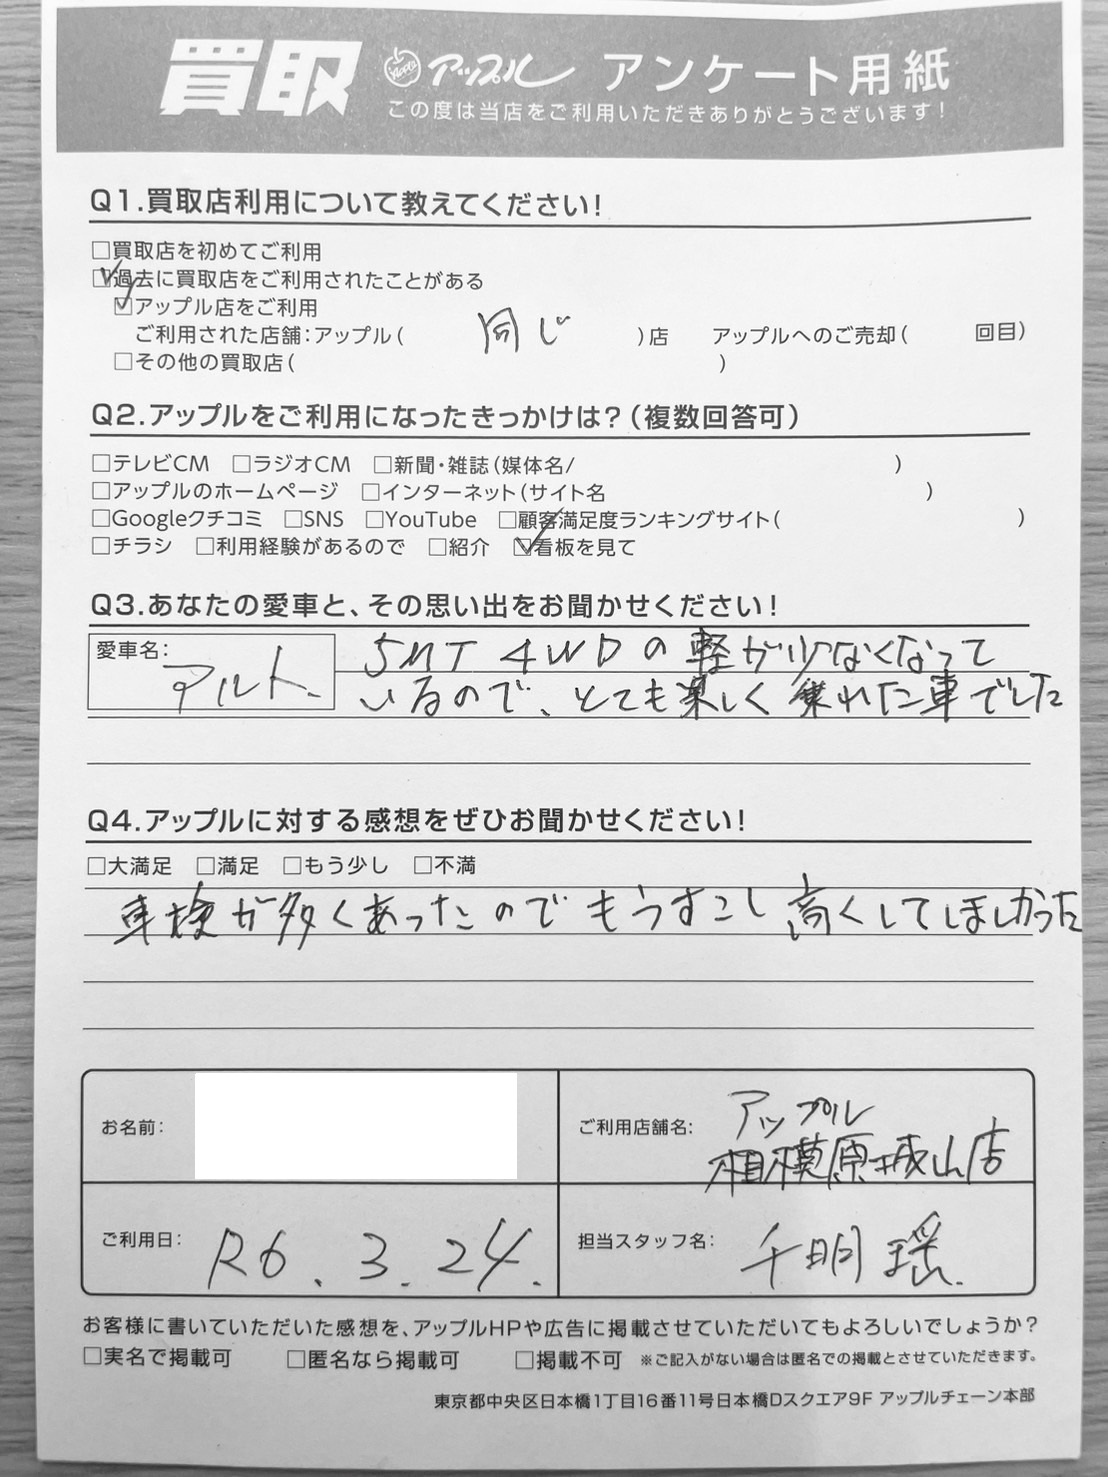 買取 Apple アップル アンケート用紙
この度は当店をご利用いただきありがとうございます!
Q1.買取店利用について教えてください!
□買取店を初めてご利用
☑過去に買取店をご利用されたことがある
☑アップル店をご利用
ご利用された店舗:アップル( 同じ )店 アップルへのご売却( 回目)
□その他の買取店( )
Q2.アップルをご利用になったきっかけは?(複数回答可)
□テレビCM □ラジオCM □新聞・雑誌(媒体名/ )
□アップルのホームページ □インターネット(サイト名 )
□Googleクチコミ □SNS □YouTube □顧客満足度ランキングサイト( )
□チラシ □利用経験があるので □紹介 ☑看板を見て
Q3.あなたの愛車と、その思い出をお聞かせください!
愛車名: アルト 5MT 4WDの軽が少なくなって
いるので、とても楽しく乗れた車でした
Q4.アップルに対する感想をぜひお聞かせください!
□大満足 □満足 □もう少し □不満
車検が多くあったのでもうすこし高くしてほしかった
お名前:
ご利用店舗名: アップル
相模原城山店
ご利用日: R6.3.24.
担当スタッフ名: 千明 瑶
お客様に書いていただいた感想を、アップルHPや広告に掲載させていただいてもよろしいでしょうか?
□実名で掲載可 □匿名なら掲載可 □掲載不可 ※ご記入がない場合は匿名での掲載とさせていただきます。
東京都中央区日本橋1丁目16番11号日本橋Dスクエア9F アップルチェーン本部